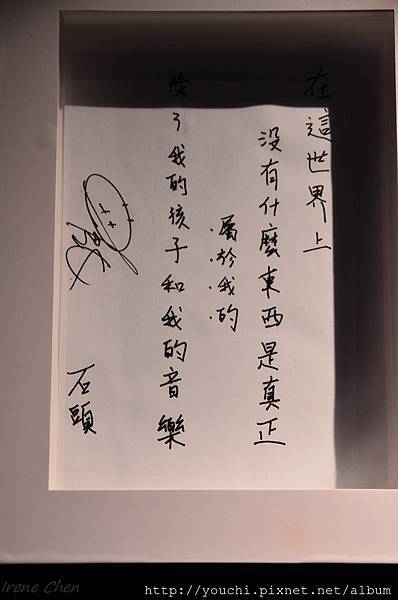 在這世界上
沒有什麼東西是真正
屬於我的
除了我的孩子和我的音樂
石頭
Irene Chen
http://youchi.pixnet.net/album